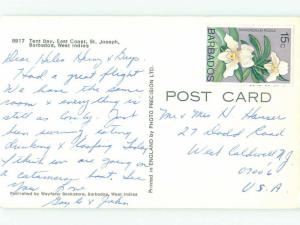 9917 Tent Bay, East Coast, St. Joseph,
Barbados, West Indies
Dear Helen Henry & Guys.
Had a great flight
We have the same
room & everything is
still as lovely. Just
been swimming, eating
drinking & loafing. Today
we are going on
a catamaran boat. See
you soon
Gayle & John
Published by Wayfarer Bookstore, Barbados, West Indies
Printed in ENGLAND by PHOTO PRECISION LTD.
BARBADOS
15c
POST CARD
Mr & Mrs H. Hauser
27 Dodd Road
West Caldwell N.J.
07006
U.S.A.